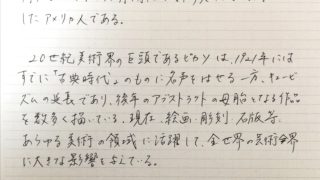 したアメリカ人である。
20世紀美術界の巨頭であるピカソは、1921年には
すでに「古典時代」のものに名声をはせる一方、キュービ
ズムの延長であり、後年のアブストラクトの母胎となる作品
を数多く描いている。現在、絵画、彫刻、石版等、
あらゆる美術の領域に活躍して、全世界の芸術界
に大きな影響を与えている。